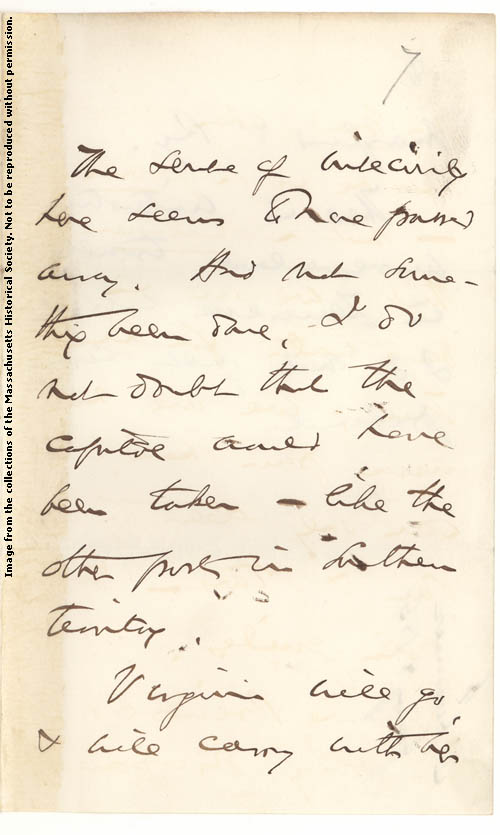 7
The sense of insecurity
here seems to have passed
away. Had not some-
thing been done, I do
not doubt that the
capitol would have
been taken – like the
other posts in Southern
territory.
Virginia will go,
& will carry with her
Image from the collections of the Massachusetts Historical Society. Not to be reproduced without permission.